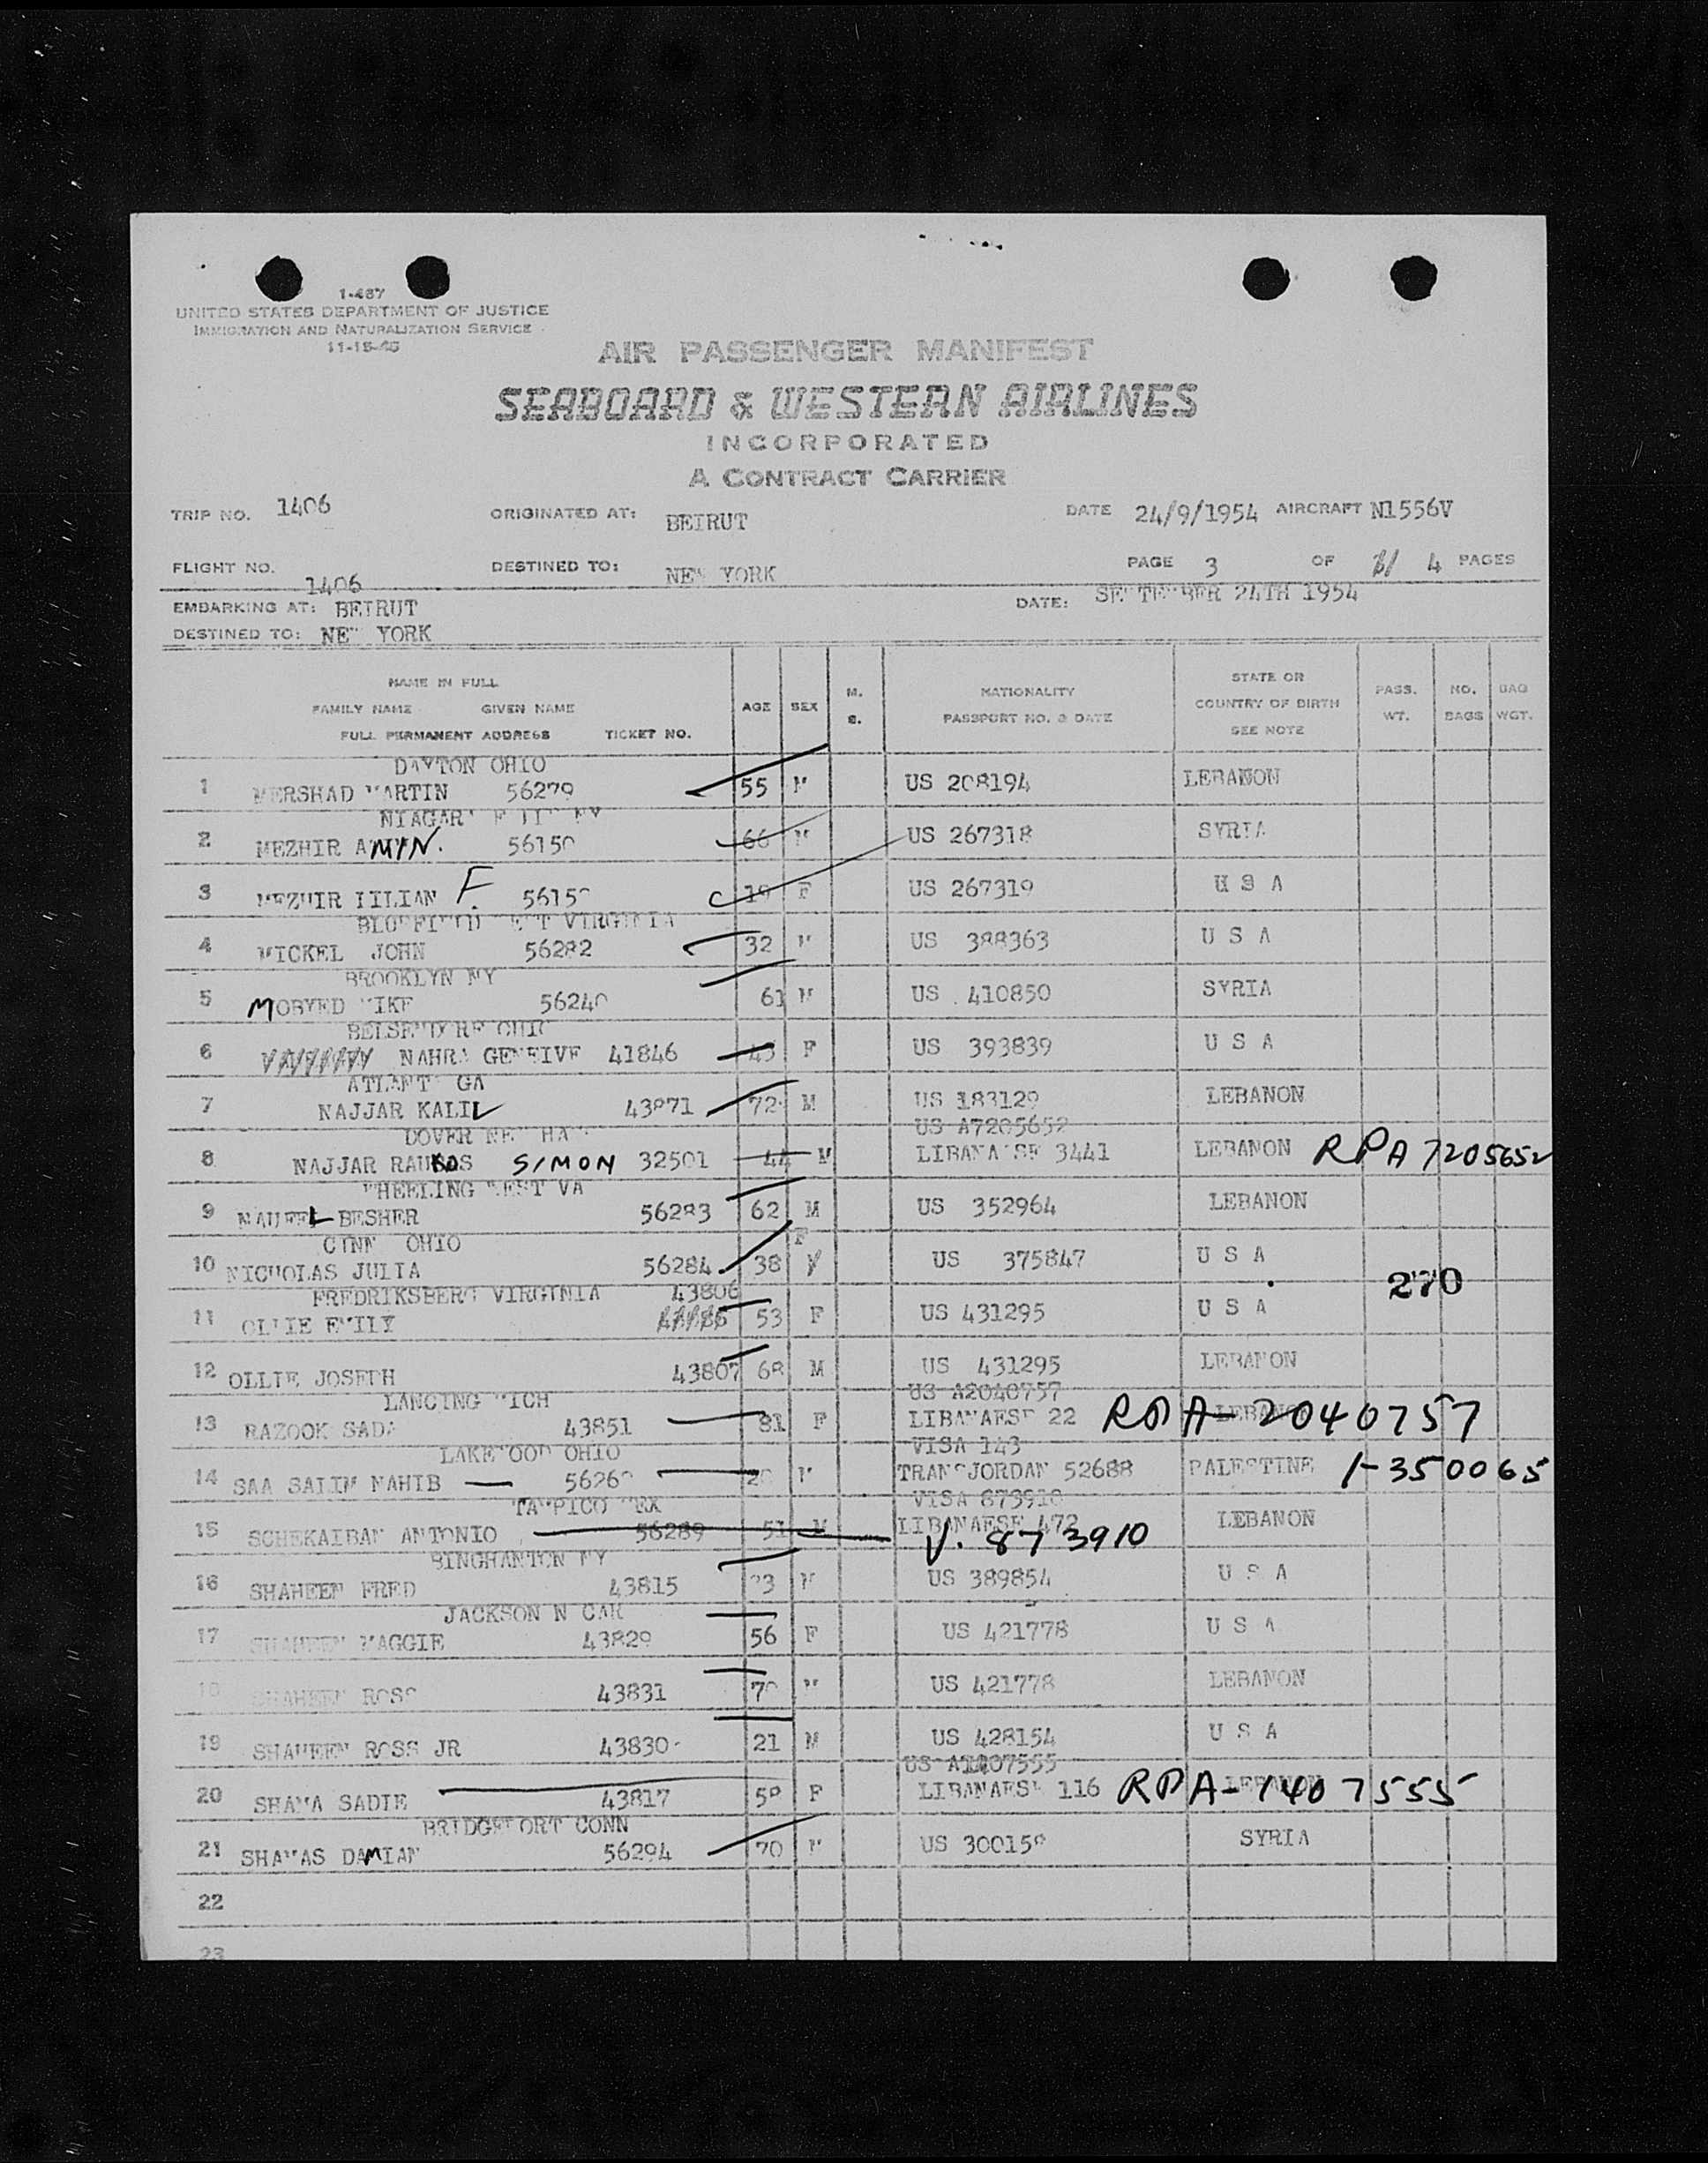 1-467
UNITED STATES DEPARTMENT OF JUSTICE
IMMIGRATION AND NATURALIZATION SERVICE
11-15-46
AIR PASSENGER MANIFEST
SEABOARD & WESTERN AIRLINES
INCORPORATED
A CONTRACT CARRIER
TRIP NO. 1406 ORIGINATED AT: BEIRUT DATE 24/9/1954 AIRCRAFT N1556V
FLIGHT NO. 1406 DESTINED TO: NEW YORK PAGE 3 OF 4 PAGES
EMBARKING AT: BEIRUT DATE: SEPTEMBER 24TH 1954
DESTINED TO: NEW YORK
NAME IN FULL
FAMILY NAME GIVEN NAME
FULL PERMANENT ADDRESS TICKET NO.
AGE SEX M. S. NATIONALITY PASSPORT NO. & DATE STATE OR COUNTRY OF BIRTH SEE NOTE PASS. WT. NO. BAGS BAG WGT.
DAYTON OHIO
1 MERSHAD MARTIN 56279 55 M US 208194 LEBANON
NIAGARA
2 MEZHIR AMIN. 56150 66 M US 267318 SYRIA
3 MEZHIR LILIAN F. 5615 19 F US 267319 U S A
BLUEFIELD WEST VIRGINIA
4 MICKEL JOHN 56282 32 M US 388363 U S A
BROOKLYN NY
5 MOBYED MIKE 56240 61 M US 410850 SYRIA
6 NAHRA GENEIVE 41846 43 F US 393839 U S A
ATLANTA GA
7 NAJJAR KALIL 43871 72 M US 183129 LEBANON
DOVER NEW US A7205652
8 NAJJAR SIMON 32501 44 M LIBANAISE 3441 LEBANON RPA 7205652
WHEELING WEST VA
9 NAUFEL BESHER 56283 62 M US 352964 LEBANON
CINN OHIO F
10 NICHOLAS JULIA 56284 38 US 375847 U S A
FREDRIKSBERG VIRGINIA 43806 270
11 OLLIE EMILY 53 F US 431295 U S A
12 OLLIE JOSEPH 43807 68 M US 431295 LEBANON
LANCING MICH US A2040757
13 RAZOOK SADA 43851 81 F LIBANAESE 22 LEBANON RPA-2040757
LAKEWOOD OHIO VISA 143
14 SAA SALIM NAHIB 5626 M TRANSJORDAN 52688 PALESTINE 1-350065
TAMPICO MEX VISA 873910
15 SCHEKAIBAN ANTONIO 56289 51 M LIBANAESE 472 LEBANON
V. 873910
BINGHANTON NY
16 SHAHEEN FRED 43815 23 M US 389854 U S A
JACKSON N CAR
17 SHAHEEN MAGGIE 43829 56 F US 421778 U S A
18 SHAHEEN ROSS 43831 70 M US 421778 LEBANON
19 SHAHEEN ROSS JR 43830 21 M US 428154 U S A
US A1407555
20 SHAMA SADIE 43817 58 F LIBANAESE 116 LEBANON RPA-1407555
BRIDGEPORT CONN
21 SHAMAS DAMIAN 56294 70 M US 300158 SYRIA
22
23